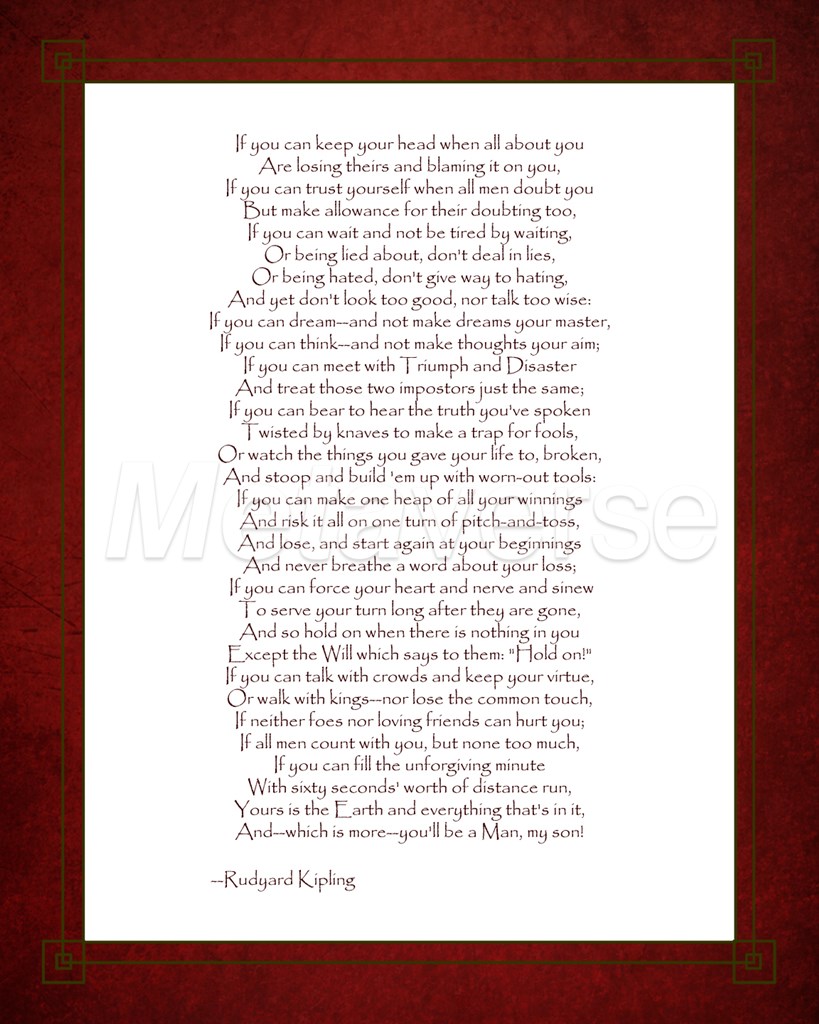 If you can keep your head when all about you
Are losing theirs and blaming it on you,
If you can trust yourself when all men doubt you
But make allowance for their doubting too,
If you can wait and not be tired by waiting,
Or being lied about, don't deal in lies,
Or being hated, don't give way to hating,
And yet don't look too good, nor talk too wise:
If you can dream--and not make dreams your master,
If you can think--and not make thoughts your aim;
If you can meet with Triumph and Disaster
And treat those two impostors just the same;
If you can bear to hear the truth you've spoken
Twisted by knaves to make a trap for fools,
Or watch the things you gave your life to, broken,
And stoop and build 'em up with worn-out tools:
If you can make one heap of all your winnings
And risk it all on one turn of pitch-and-toss,
And lose, and start again at your beginnings
And never breathe a word about your loss;
If you can force your heart and nerve and sinew
To serve your turn long after they are gone,
And so hold on when there is nothing in you
Except the Will which says to them: "Hold on!"
If you can talk with crowds and keep your virtue,
Or walk with kings--nor lose the common touch,
If neither foes nor loving friends can hurt you;
If all men count with you, but none too much,
If you can fill the unforgiving minute
With sixty seconds' worth of distance run,
Yours is the Earth and everything that's in it,
And--which is more--you'll be a Man, my son!
--Rudyard Kipling
Metaverse